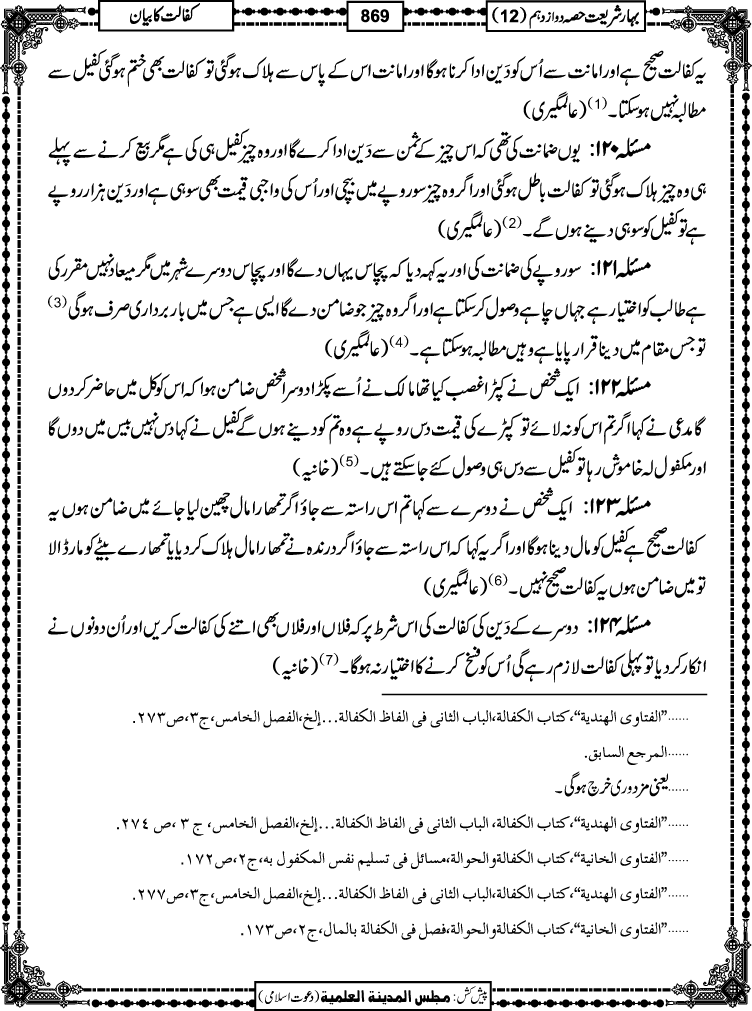 بہار شریعت حصہ دوازدہم (12)
869
کفالت کا بیان
یہ کفالت صحیح ہے اور امانت سے اُس کو دَین ادا کرنا ہوگا اور امانت اس کے پاس سے ہلاک ہوگئی تو کفالت بھی ختم ہوگئی کفیل سے
مطالبہ نہیں ہوسکتا۔(1) (عالمگیری)
مسئلہ ۱۲۰: یوں ضمانت کی تھی کہ اس چیز کے ثمن سے دَین ادا کرے گا اور وہ چیز کفیل ہی کی ہے مگر بیع کرنے سے پہلے
ہی وہ چیز ہلاک ہوگئی تو کفالت باطل ہوگئی اور اگر وہ چیز سو روپے میں بیچی اور اُس کی واجبی قیمت بھی سو ہی ہے اور دَین ہزار روپے
ہے تو کفیل کو سو ہی دینے ہوں گے۔(2) (عالمگیری)
مسئلہ ۱۲۱: سو روپے کی ضمانت کی اور یہ کہہ دیا کہ پچاس یہاں دے گا اور پچاس دوسرے شہر میں مگر میعاد نہیں مقرر کی
ہے طالب کو اختیار ہے جہاں چاہے وصول کرسکتا ہے اور اگر وہ چیز جو ضامن دے گا ایسی ہے جس میں بار برداری صرف ہوگی(3)
تو جس مقام میں دینا قرار پایا ہے وہیں مطالبہ ہوسکتا ہے۔(4) (عالمگیری)
مسئلہ ۱۲۲: ایک شخص نے کپڑا غصب کیا تھا مالک نے اُسے پکڑا دوسرا شخص ضامن ہوا کہ اس کو کل میں حاضر کردوں
گا مدعی نے کہا اگر تم اس کو نہ لائے تو کپڑے کی قیمت دس روپے ہے وہ تم کو دینے ہوں گے کفیل نے کہا دس نہیں بیس میں دوں گا
اور مکفول لہ خاموش رہا تو کفیل سے دس ہی وصول کئے جاسکتے ہیں۔(5) (خانیہ)
مسئلہ ۱۲۳: ایک شخص نے دوسرے سے کہا تم اس راستہ سے جاؤ اگر تمھارا مال چھین لیا جائے میں ضامن ہوں یہ
کفالت صحیح ہے کفیل کو مال دینا ہوگا اور اگر یہ کہا کہ اس راستہ سے جاؤ اگر درندہ نے تمھارا مال ہلاک کردیا یا تمھارے بیٹے کو مار ڈالا
تو میں ضامن ہوں یہ کفالت صحیح نہیں۔(6) (عالمگیری)
مسئلہ ۱۲۴: دوسرے کے دَین کی کفالت کی اس شرط پر کہ فلاں اور فلاں بھی اتنے کی کفالت کریں اور اُن دونوں نے
انکار کر دیا تو پہلی کفالت لازم رہے گی اُس کو فسخ کرنے کا اختیار نہ ہوگا۔(7) (خانیہ)
......”الفتاوی الھندیة“،کتاب الکفالة،الباب الثانی فی الفاظ الکفالة...إلخ،الفصل الخامس،ج۳،ص۲۷۳.
......المرجع السابق.
......یعنی مزدوری خرچ ہوگی۔
......”الفتاوی الھندیة“،کتاب الکفالة، الباب الثانی فی الفاظ الکفالة...إلخ،الفصل الخامس، ج ۳ ،ص ۲۷٤.
......”الفتاوی الخانیة“،کتاب الکفالة والحوالة،مسائل فی تسلیم نفس المکفول به،ج۲،ص۱۷۲.
......”الفتاوی الھندیة“،کتاب الکفالة،الباب الثانی فی الفاظ الکفالة...إلخ،الفصل الخامس،ج۳،ص۲۷۷.
......”الفتاوی الخانیة“،کتاب الکفالة والحوالة،فصل فی الکفالة بالمال،ج۲،ص۱۷۳.
پیش کش: مجلس المدینة العلمیة (دعوت اسلامی)